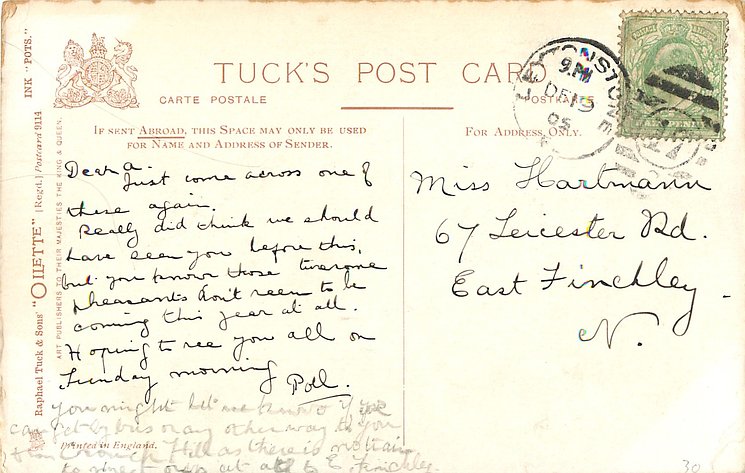 INK "POTS."
Raphael Tuck & Sons' "OILETTE" [Regd.] Postcard 9114
ART PUBLISHERS TO THEIR MAJESTIES THE KING & QUEEN.
TUCK'S POST CARD
CARTE POSTALE
POSTKARTE
LEYTONSTONE
9.PM
DE 19
05
IF SENT ABROAD, THIS SPACE MAY ONLY BE USED
FOR NAME AND ADDRESS OF SENDER.
FOR ADDRESS ONLY.
Dear A
Just come across one of
these again.
Really did think we should
have seen you before this,
but you know those tiresome
pheasants don't seem to be
coming this year at all.
Hoping to see you all on
Sunday morning
Poll.
you might let me know if you
can get by bus or any other way to you
from Crouch Hill as there is no train
to direct at all to E. Finchley.
Printed in England.
Miss Hartmann
67 Leicester Rd.
East Finchley.
N.
30